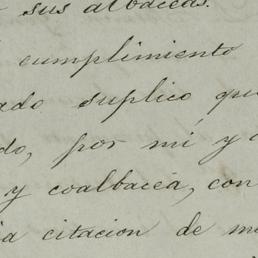 sus albaceas.
cumplimiento
ado suplico que
do, por mí y a
y coalbacea, con
ia citacion de me